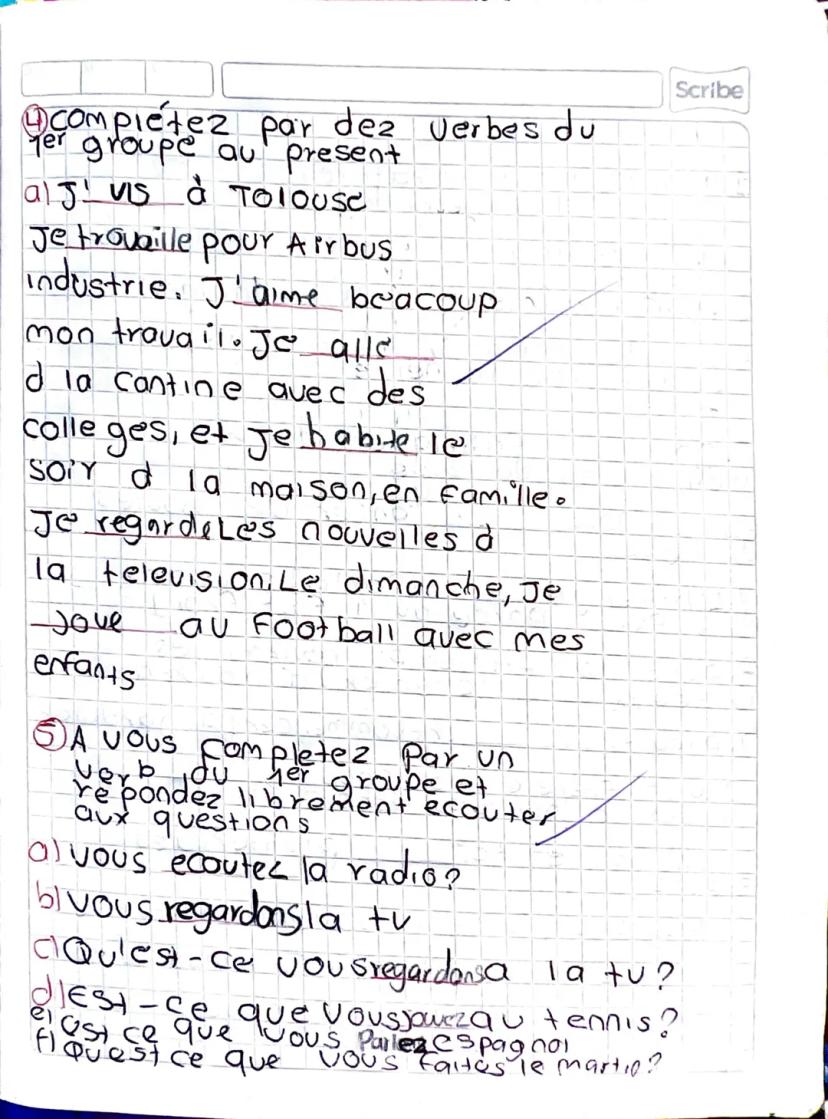 Scribe
④ complétez par dez verbes du
1er groupe au present
a) J' vis à Tolouse
Je travaille pour Airbus
industrie. J'aime beacoup
mon travail. Je alle
d la cantine avec des
colleges, et Je habite le
soir d la maison, en famille.
Je regarde Les nouvelles d
la television. Le dimanche, Je
joue au Football avec mes
enfants
⑤ A vous completez Par un
verb du 1er groupe et
repondez librement ecouter
aux questions
a) vous ecoutez la radio?
b) vous regardons la tv
c) Qu'est-ce vous regardons a la tv?
d) Est-ce que vous jouez au tennis?
e) est ce que vous Parlez espagnol
f) Quest ce que vous faites le